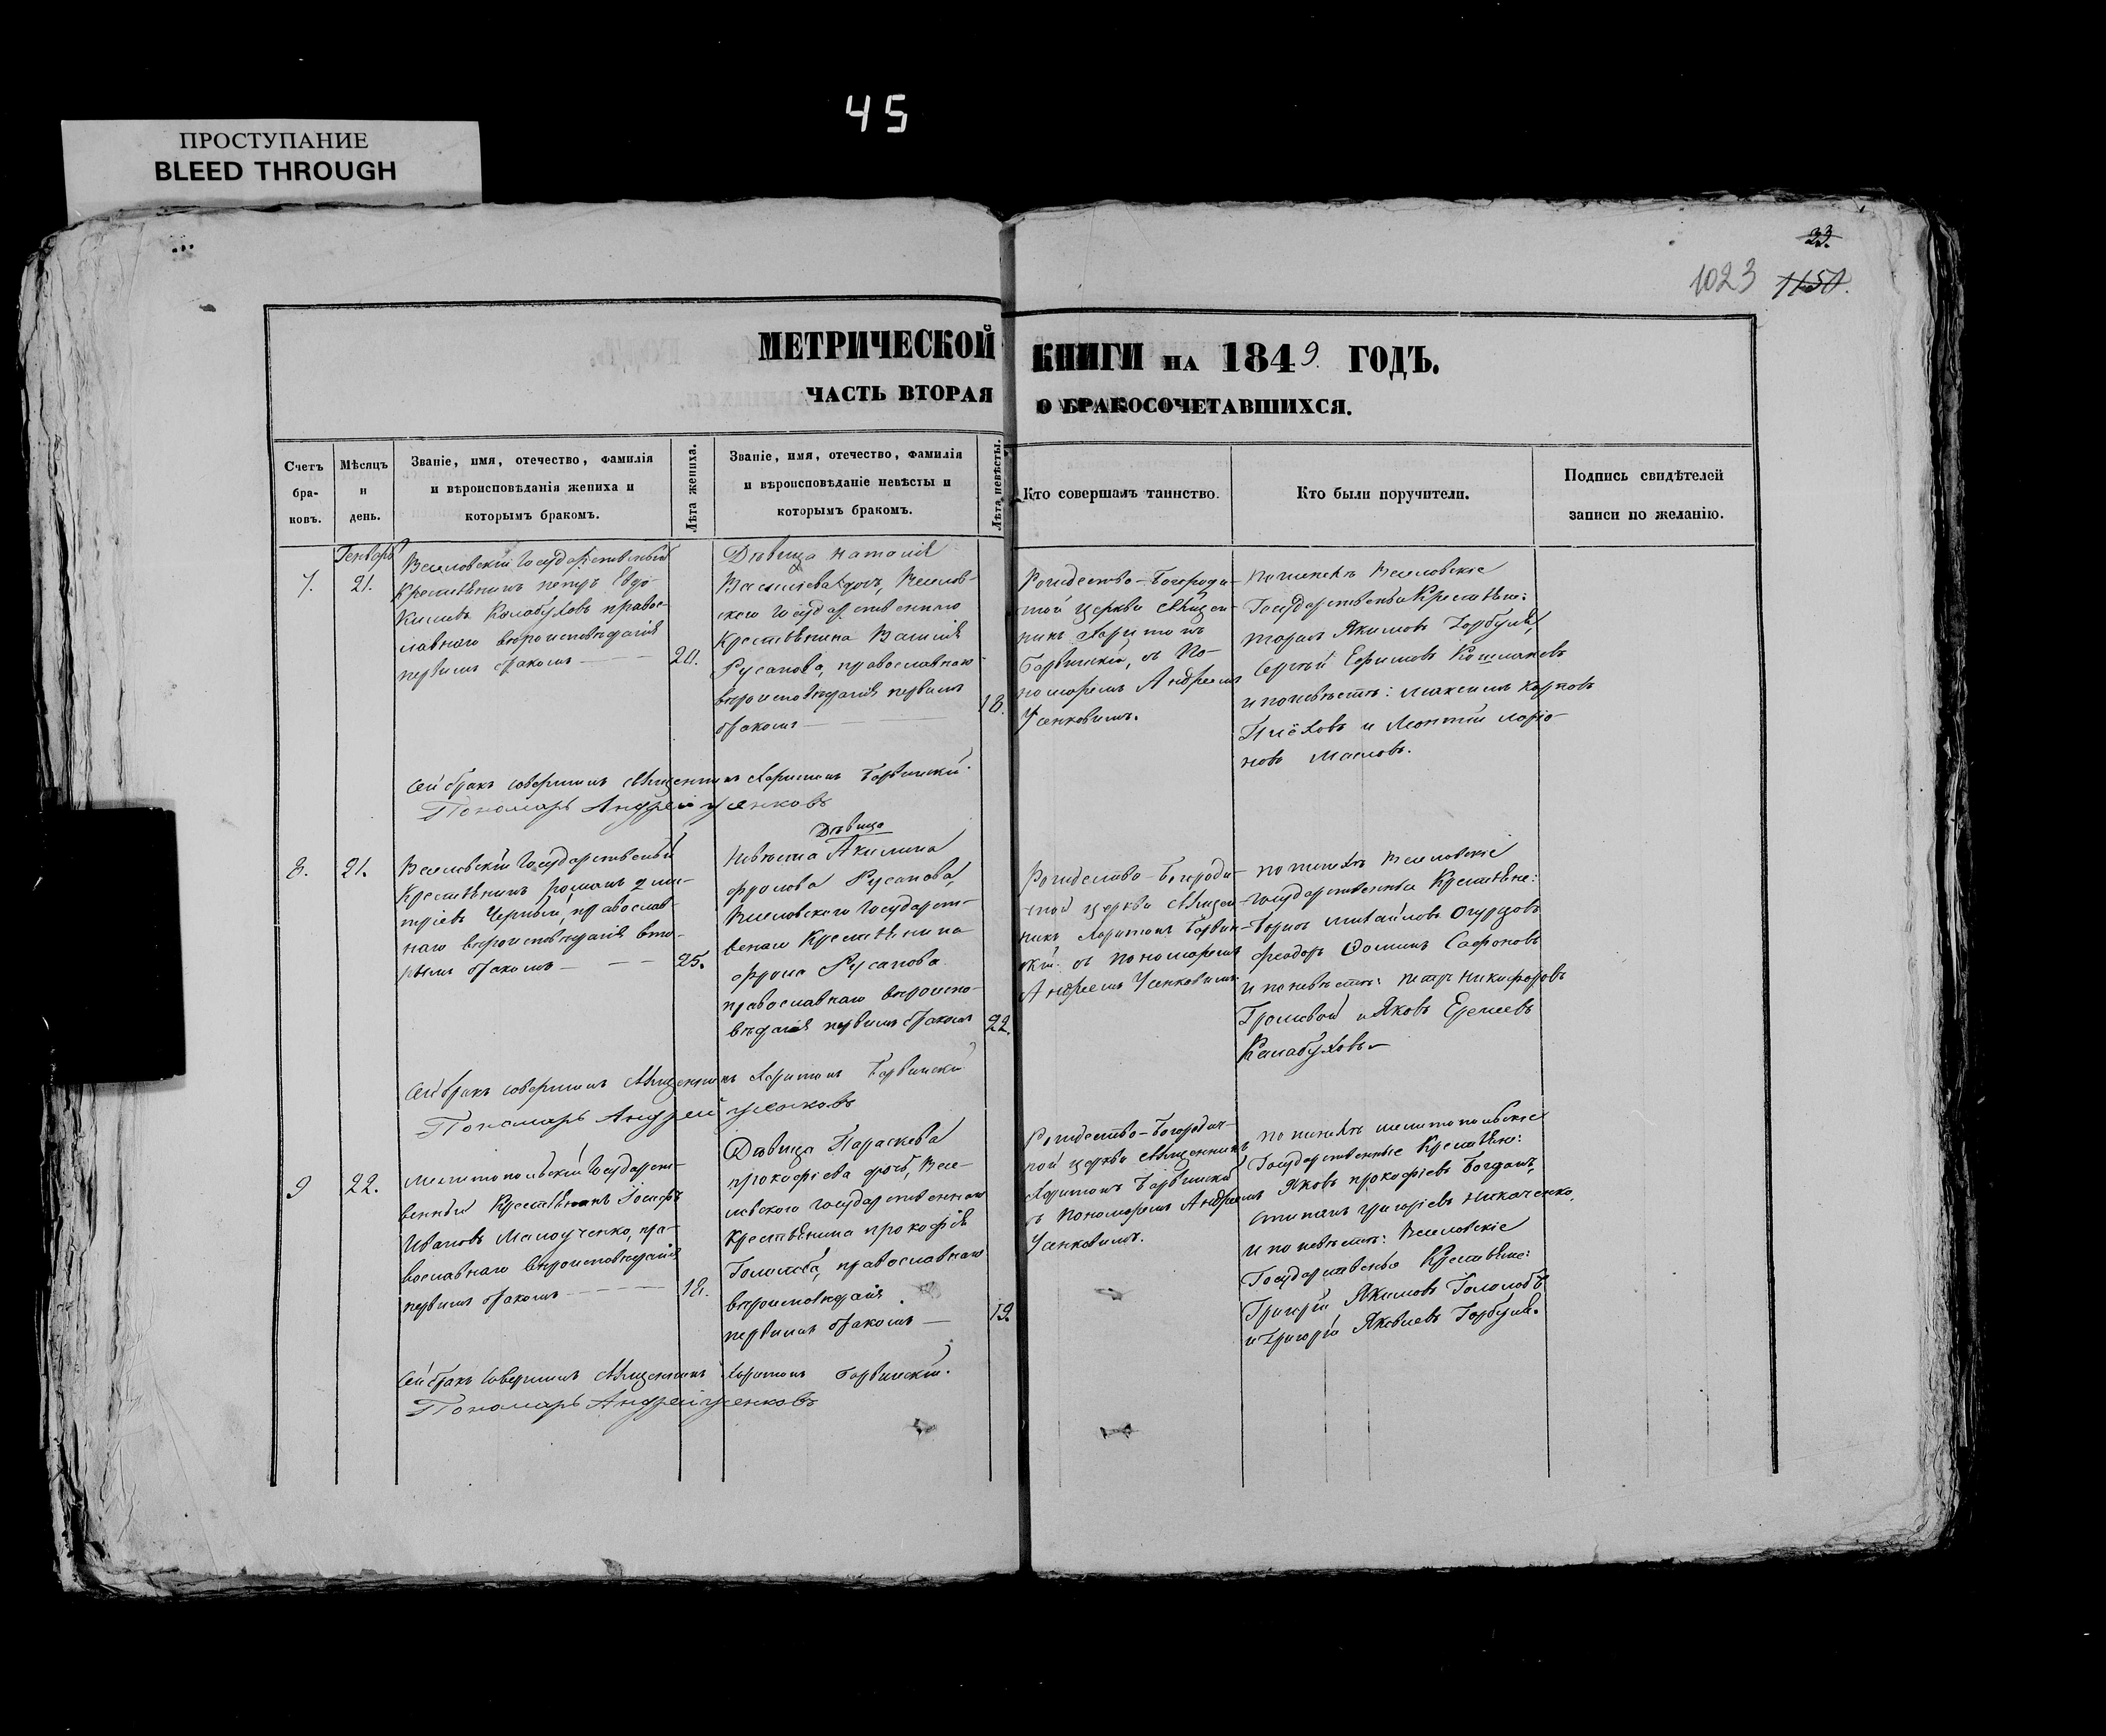 45
ПРОСТУПАНИЕ
BLEED THROUGH
33.
1023 1150.
МЕТРИЧЕСКОЙ КНИГИ НА 1849. ГОДЪ.
ЧАСТЬ ВТОРАЯ О БРАКОСОЧЕТАВШИХСЯ.
Счетъ
бра-
ковъ.
Мѣсяцъ
и
день.
Званіе, имя, отечество, фамилія
и вѣроисповѣданія жениха и
которымъ бракомъ.
Лѣта жениха.
Званіе, имя, отечество, фамилія
и вѣроисповѣданіе невѣсты и
которымъ бракомъ.
Лѣта невѣсты.
Кто совершалъ таинство.
Кто были поручители.
Подпись свидѣтелей
записи по желанію.
7.
Генваръ
21.
Веселовскій Государственый
Крестьянинъ петръ Евдо-
кимовъ Калабуховъ правос-
лавнаго вѣроисповѣданія
первымъ бракомъ
20.
Дѣвица наталія
Васильева дочь, Веселов-
скаго Государственнаго
Крестьянина Василія
Русанова, православнаго
вѣроисповѣданія первымъ
бракомъ
18.
Рождество-Богороди-
ной церкви священ-
никъ Харитонъ
Барвинскій, съ По-
номаремъ Андреемъ
Усенковымъ.
По женихѣ Веселовскіе
Государственые Крестьяне:
Якимовъ Горбуля,
Сергѣй Ефимовъ Кошмаковъ
и по невѣстѣ: Максимъ Карповъ
и Леонтій ларіо-
новъ Масловъ.
Сей бракъ совершилъ священникъ Харитонъ Барвинскій.
Пономарь Андрей Усенковъ
8.
21.
Веселовскій Государственый
Крестьянинъ романъ дми-
тріевъ Черный, православ-
наго вѣроисповѣданія вто-
рымъ бракомъ
25.
Дѣвица
Невѣста Акилина
фролова Русанова,
Веселовскаго Государст-
венаго Крестьянина
фрола Русанова
православнаго вѣроиспо-
вѣданія первымъ бракомъ
22.
Рождество-Богороди-
ной церкви священ-
никъ Харитонъ Барвин-
скій съ пономаремъ
Андреемъ Усенковымъ
по женихѣ Веселовскіе
Государственые Крестьяне:
Борисъ михайловъ Огурцовъ
феодоръ Ѳоминъ Сафоновъ
и по невѣстѣ: петръ никифоровъ
Громовой и Яковъ Еремеевъ
Калабуховъ
Сей бракъ совершилъ священникъ Харитонъ Барвинскій
Пономарь Андрей Усенковъ
9
22.
мелитопольскій Государст-
венный Крестьянинъ Іосифъ
Ивановъ Малоученко, пра-
вославнаго вѣроисповѣданія
первымъ бракомъ
18.
Дѣвица Параскева
прокофіева дочь, Весе-
ловскаго Государственнаго
Крестьянина прокофія
Гололоба, православнаго
вѣроисповѣданія
первымъ бракомъ
19.
Рождество-Богородич-
ной церкви священникъ
Харитонъ Барвинскій
съ Пономаремъ Андреемъ
Усенковымъ.
по женихѣ мелитопольскіе
Государственные Крестьяне:
Яковъ прокофіевъ Богданъ,
степанъ григоріевъ никаченко,
и по невѣстѣ: Веселовскіе
Государственые Крестьяне:
Григорій Якимовъ Гололобъ
и Григорій Яковлевъ Горбуля.
Сей бракъ совершилъ священникъ Харитонъ Барвинскій.
Пономарь Андрей Усенковъ